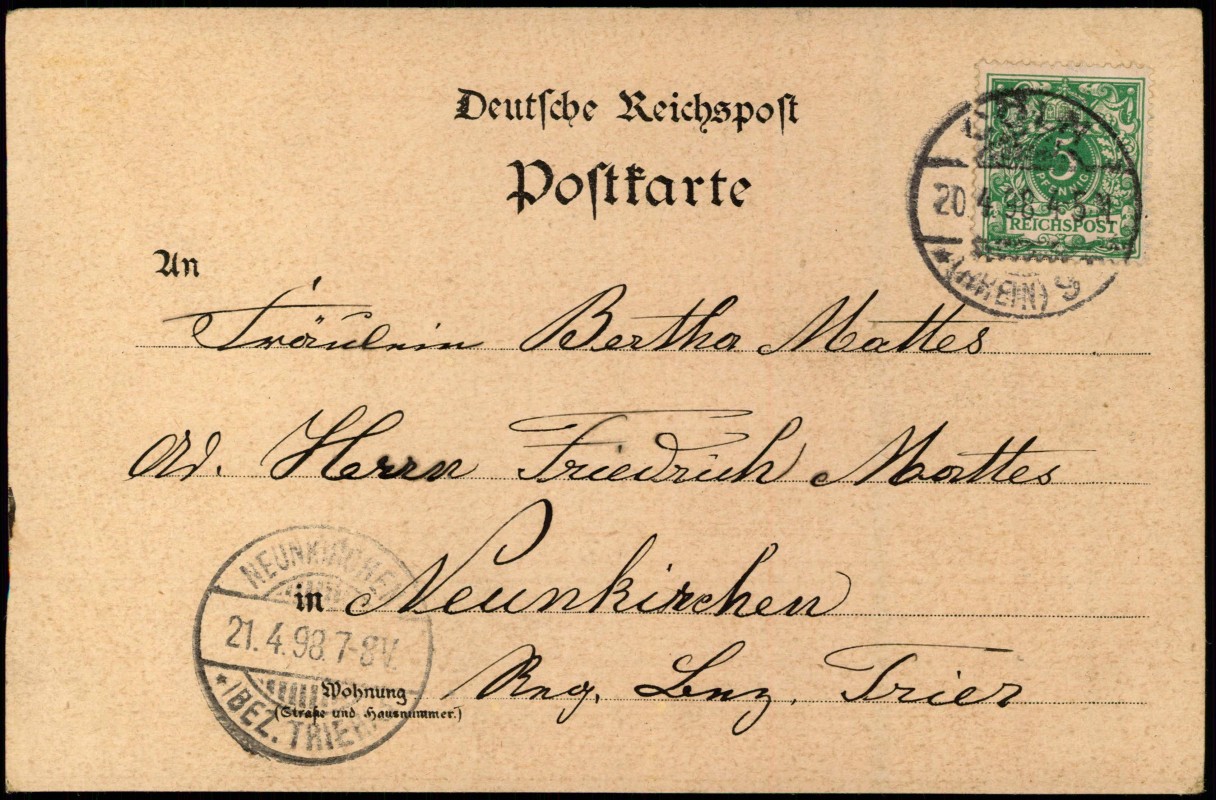 Deutsche Reichspost
Postkarte
CÖLN
20.4.98 4-5N
*(RHEIN) 9
5
PFENNIG
REICHSPOST
An
Fräulein Bertha Mattes
Herrn Friedrich Mattes
NEUNKIRCHEN
in Neunkirchen
21.4.98.7-8V.
*(BEZ. TRIER)
Wohnung
(Straße und Hausnummer.)
Reg. Bez. Trier